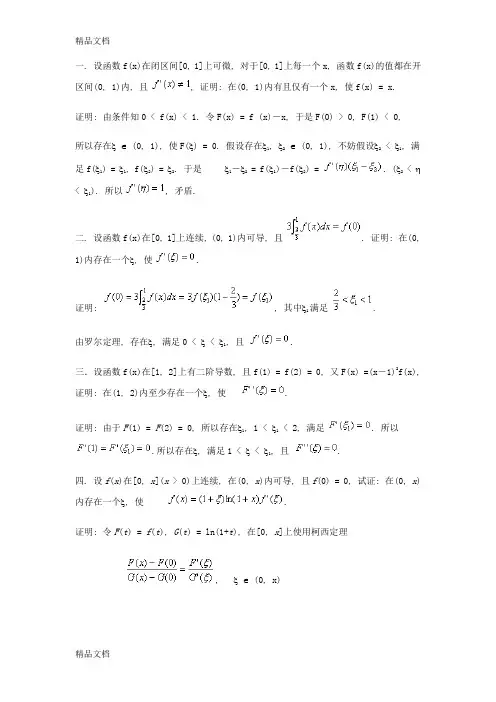 精品文档
一. 设函数f(x)在闭区间[0, 1]上可微, 对于[0, 1]上每一个x, 函数f(x)的值都在开
区间(0, 1)内, 且 f'(x)≠1, 证明: 在(0, 1)内有且仅有一个x, 使f(x) = x.
证明: 由条件知0 < f(x) < 1. 令F(x) = f (x)-x, 于是F(0) > 0, F(1) < 0,
所以存在ξ ∈ (0, 1), 使F(ξ) = 0. 假设存在ξ₁, ξ₂ ∈ (0, 1), 不妨假设ξ₂ < ξ₁, 满
足f(ξ₁) = ξ₁, f(ξ₂) = ξ₂. 于是 ξ₁-ξ₂ = f(ξ₁)-f(ξ₂) = f'(η)(ξ₁-ξ₂). (ξ₂ < η
< ξ₁). 所以 f'(η)=1, 矛盾.
二. 设函数f(x)在[0, 1]上连续, (0, 1)内可导, 且 3∫_{2/3}^{1} f(x)dx = f(0). 证明: 在(0,
1)内存在一个ξ, 使 f'(ξ)=0.
证明: f(0) = 3∫_{2/3}^{1} f(x)dx = 3f(ξ₁)(1-2/3) = f(ξ₁), 其中ξ₁满足 2/3<ξ₁<1.
由罗尔定理, 存在ξ, 满足0 < ξ < ξ₁, 且 f'(ξ)=0.
三. 设函数f(x)在[1, 2]上有二阶导数, 且f(1) = f(2) = 0, 又F(x) =(x-1)²f(x),
证明: 在(1, 2)内至少存在一个ξ, 使 F''(ξ)=0.
证明: 由于F(1) = F(2) = 0, 所以存在ξ₁, 1 < ξ₁ < 2, 满足 F'(ξ₁)=0. 所以
F'(1)=F'(ξ₁)=0.所以存在ξ, 满足1 < ξ < ξ₁, 且 F''(ξ)=0.
四. 设f(x)在[0, x](x > 0)上连续, 在(0, x)内可导, 且f(0) = 0, 试证: 在(0, x)
内存在一个ξ, 使 f(x)=(1+ξ)ln(1+x)f'(ξ).
证明: 令F(t) = f(t), G(t) = ln(1+t), 在[0, x]上使用柯西定理
(F(x)-F(0))/(G(x)-G(0)) = F'(ξ)/G'(ξ), ξ ∈ (0, x)
精品文档